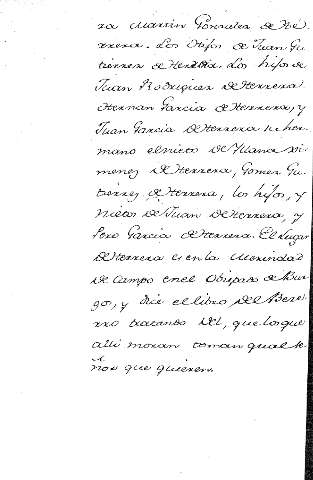 ra Martin Gonzalez de He
rrera. Los Hijos de Juan Gu
tierrez de Herrera. Los hijos de
Juan Rodriguez de Herrera
Hernan Garcia de Herrera, y
Juan Garcia de Herrera su her
mano el nieto de Juana Xi
menez de Herrera, Gomez Gu
tierrez de Herrera, los hijos, y
Nietos de Juan de Herrera, y
Pero Garcia de Herrera. El Lugar
de Herrera es en la Merindad
de Campo en el Obispado de Bur
gos, y dice el libro del Beze
rro tratando del, que los que
alli moran toman qual Se
ñor que quieren.